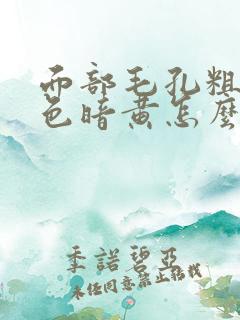 面部毛孔粗
色暗黄怎麼
季諾碧亞
未经同意禁止搭载